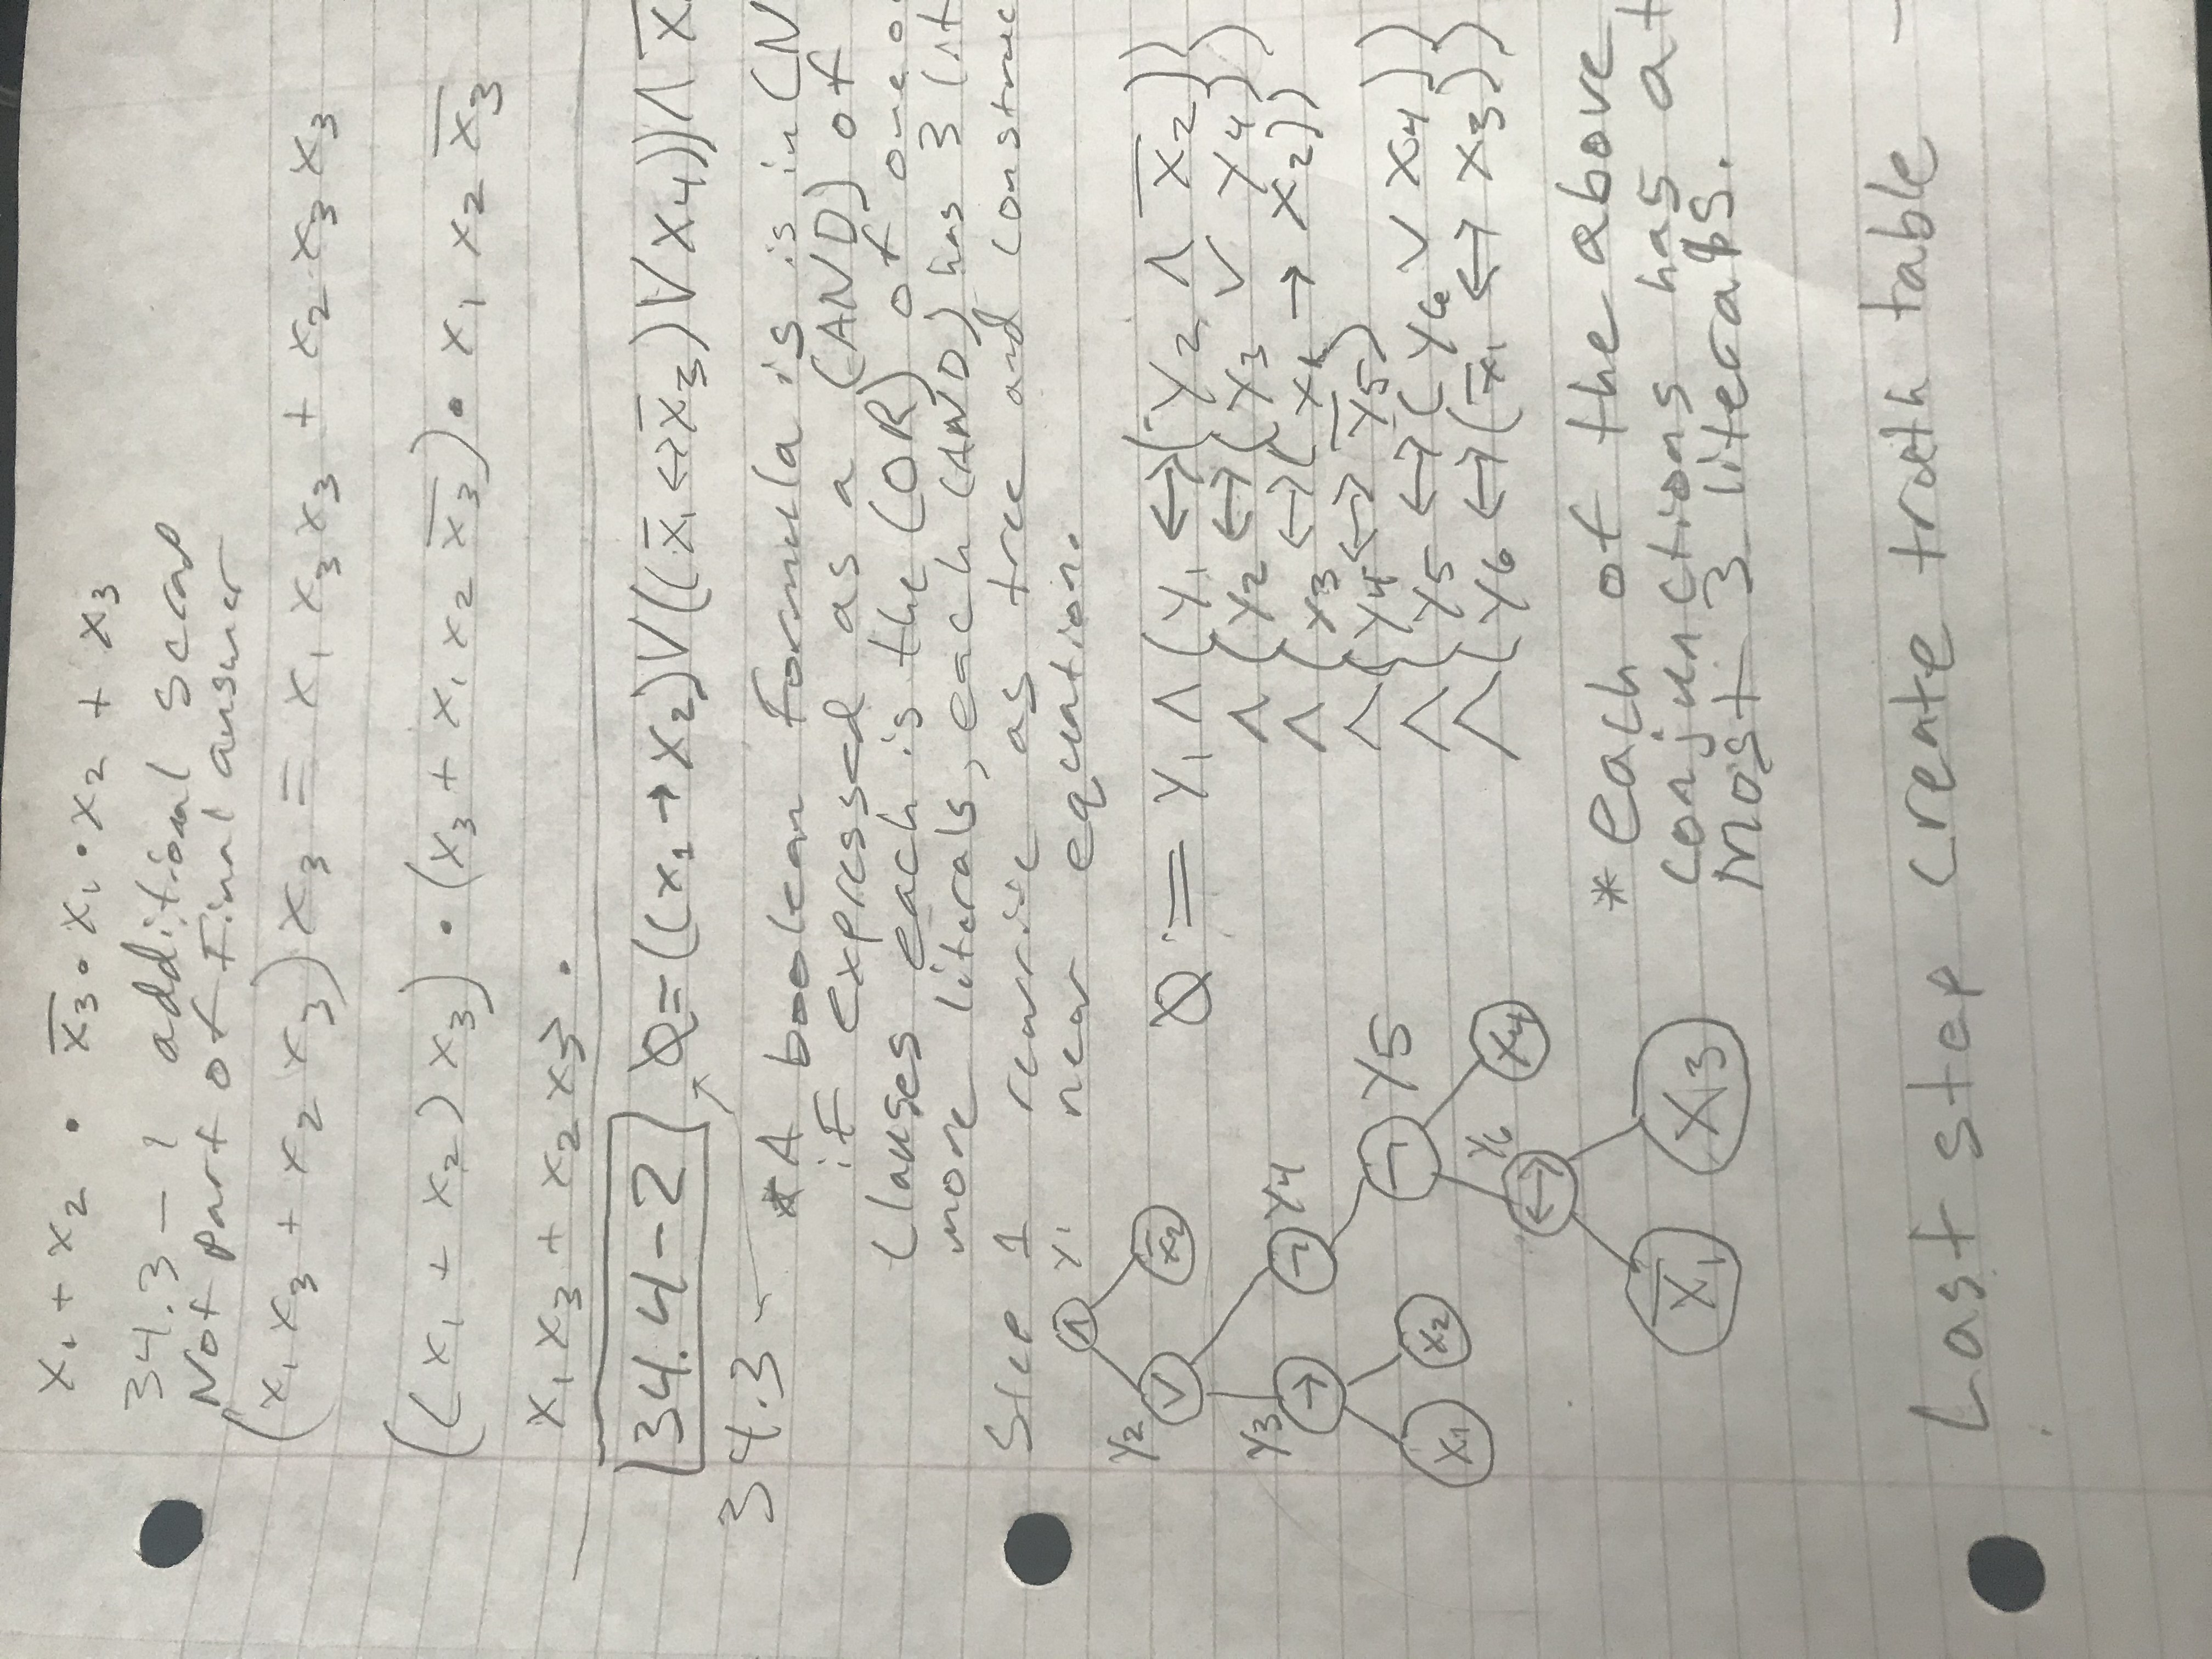 x₁ + x₂ · x̅₃ · x₁ · x₂ + x₃
34.3 - 1 additional scrap
Not part of Final answer
(x₁ x₃ + x₂ x₃) x₃ = x₁ x₃ x₃ + x₂ x₃ x₃
((x₁ + x₂) x₃) · (x₃ + x₁ x₂ x̅₃) · x₁ x₂ x̅₃
x₁ x₃ + x₂ x₃ ·
34.4-2 Ø = ((x₁ → x₂) V ((x̅₁ ↔ x̅₃) V x₄)) Λ x̅
34.3
*A boolean Formula is is in CN
if expressed as a (AND) of
Clauses each is the (OR) of one o
more literals, each (AND) has 3 lit
Step 1 rewrite as tree and construc
near equation.
Λ y₁
y₂ V x̅₂
y₃ → ¬ y₄
x₁ x₂ ¬ y₅
y₆ ↔ x₄
x̅₁ x₃
Ø = y₁ Λ (y₁ ↔ (y₂ Λ x̅₂))
Λ (y₂ ↔ (y₃ V y₄))
Λ (y₃ ↔ (x₁ → x₂))
Λ (y₄ ↔ y̅₅)
Λ (y₅ ↔ (y₆ V x₄))
Λ (y₆ ↔ (x̅₁ ↔ x₃))
*each of the above
conjunctions has at
Most 3 literals.
Last step create truth table -